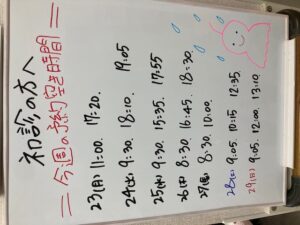 初診の方へ
=今週の予約空き時間=
23(月) 11:00. 17:20.
24(火) 9:30. 18:10. 19:05
25(水) 9:30. 15:35. 17:55
26(木) 8:30. 16:45. 18:30.
27(金) 8:30. 10:00.
28(土) 9:05. 10:15 12:35.
29(日) 9:05. 12:00 13:10.